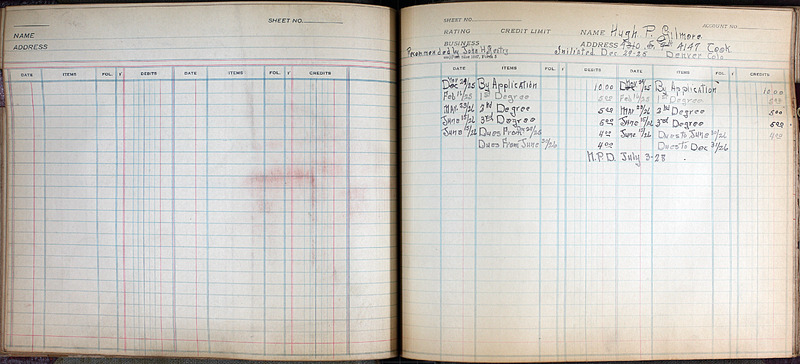 SHEET NO.
NAME
ADDRESS
DATE ITEMS FOL. DEBITS DATE ITEMS FOL. CREDITS
SHEET NO. ACCOUNT NO.
RATING CREDIT LIMIT NAME Hugh P. Gilmore
BUSINESS ADDRESS 4147 Cook
Recommended by John H. Denver Colo.
Initiated Dec 29-25
DATE ITEMS FOL. DEBITS DATE ITEMS FOL. CREDITS
Nov 29/25 By Application 10 00 Nov 29/25 By Application 10 00
Feb 16/25 1st Degree 5 00 Feb 16/25 1st Degree 5 00
Mar 23/26 2nd Degree 5 00 Mar 23/26 2nd Degree 5 00
June 15/26 3rd Degree 5 00 June 15/26 3rd Degree 5 00
June 15/26 Dues From 4 00 June 15/26 Dues to June 30/26 4 00
Dues From June 30/26 4 00 Dues to Dec 31/26
N.P.D. July 3-28